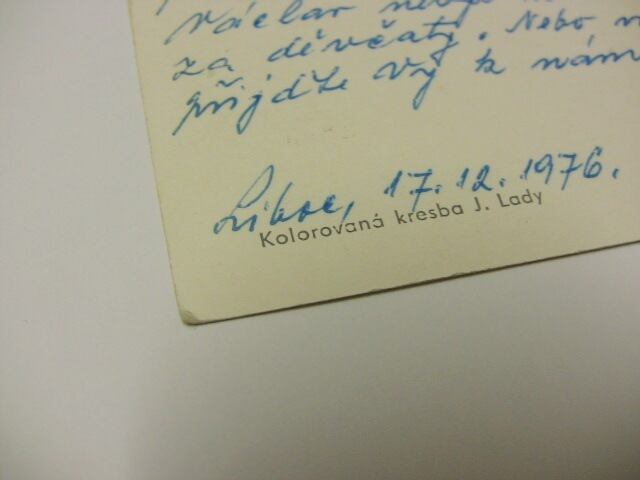 Václav
za děvčaty. Nebo
přijďte Vy k nám
Liboc, 17.12.1976.
Kolorovaná kresba J. Lady